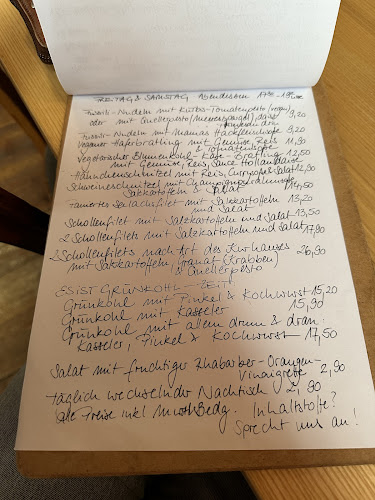 FREITAG & SAMSTAG Abendessen 17³⁰ - 19
Fusilli-Nudeln mit Kürbis-Tomatenpesto (vegan)
oder mit Quellerpesto (Meeresspargel) dazu 9,20
Fusilli-Nudeln mit Mamas Hackfleischsoße 9,20
Veganer Haferbratling mit Gemüse, Reis & Tomatensoße 11,90
Vegetarischer Blumenkohl-Käse-Bratling 12,50
mit Gemüse, Reis, Sauce Hollandaise
Hähnchenschnitzel mit Reis, Currysoße & Salat 12,90
Schweineschnitzel mit Champignonrahmsoße
Salzkartoffeln & Salat 14,50
paniertes Seelachsfilet mit Salzkartoffeln
und Salat 13,20
Schollenfilet mit Salzkartoffeln und Salat 13,50
2 Schollenfilets mit Salzkartoffeln und Salat 17,90
2 Schollenfilets nach Art des Kurhauses 26,90
mit Salzkartoffeln, Granat (Krabben)
& Quellerpesto
ES IST GRÜNKOHL-ZEIT
Grünkohl mit Pinkel & Kochwurst 15,20
Grünkohl mit Kasseler 15,90
Grünkohl mit allem drum & dran:
Kasseler, Pinkel & Kochwurst 17,50
Salat mit fruchtiger Rhabarber-Orangen-
Vinaigrette 2,90
täglich wechselnder Nachtisch 2,90
alle Preise inkl MwSt & Bedg. Inhaltstoffe?
Sprecht uns an!